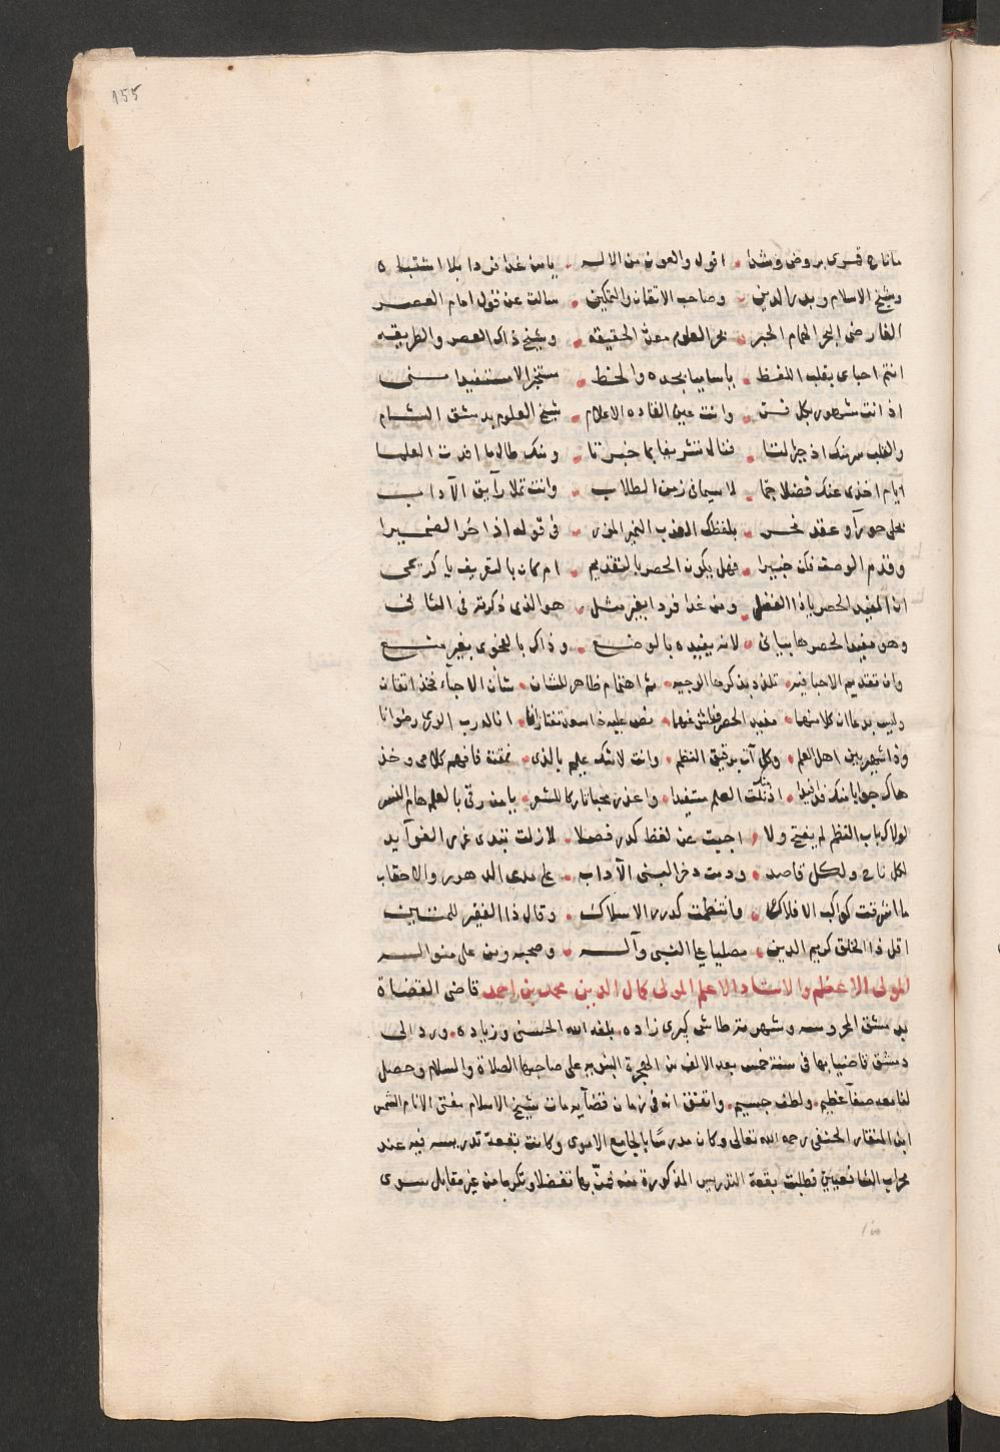 155
ماناح قمرى بروض وشدا اقول والعون من الاله يا من غدا فردا بلا اشتباه
وشيخ الاسلام وبدر الدين وصاحب الاتقان والتمكين سالت عن قول امام العصر
الفارضى البحر الهمام الحبر بحر العلوم معدن الحقيقه وشيخ ذاك العصر والطريقه
انتم احباى بقلب اللفظ يا ساميا بجده والحظ مستخبرا مستفيدا منى
اذ انت مشهور بكل فن وانت عين القاده الاعلام شيخ العلوم بدمشق الشام
والقلب من بك اذ جبرلتنا فنال تشريفا بما خبرتنا ومنك طالما افدت العلما
ايام اخذى عنك فضلا جما لا سيما فى زمن الطلاب وانت تملا رايق الآداب
تحلى حورآء وعقد نحر بلفظك العذب النمير المزر فى قوله اذا اخر الضميرا
وقدم الوصف فكن خبيرا فهل يكون الحصر بالتقديم ام كان بالتعريف يا كريمى
ان المفيد الحصر يا ذا الفضل ومن غدا فردا بغير مثل هو الذى ذكرته فى الثانى
وهو مفيد الحصر ها بيانى لانه يفيده بالوضع وذاك بالفحوى بغير منع
وان تقديم الاحبا فيه تلذذ بذكرها الوجيه ثم اهتمام ظاهر للشان شأن الاحبآء فخذ اتقان
وليس بدعا ان كلا منها مفيد الحصر فنص عليه ذا سعد تفتازانا اناله رب الورى رضوانا
وذا شهير بين اهل العلم وكل آت برقيق النظم وانت لا شك عليم بالذى نمقته فافهم كلامى وخذ
هاك جوابا منك قد افيدا اذ كنت للعلم مستفيدا واعذر محبا تاركا للشعر يا من رقى بالعلم هام النسر
لولاك باب النظم لم يفتح ولا اجبت عن لفظ كدر فصلا لازلت تبدى غرر الفوآيد
لكل ناح ولكل قاصد ودمت دخرا لبنى الآداب على مدى الدهور والاحقاب
ما اشرقت كواكب الافلاك وانتظمت كدرر الاسلاك وقال ذا الفقير للمتين
اقل ذا الخلق كريم الدين مصليا على النبى وآله وصحبه ومن على منواله
المولى الاعظم والاستاد الاعلم المولى كمال الدين محمد بن احمد قاضى القضاة
بدمشق المحروسه وشهرته طاشى كبرى زاده بلغه الله الحسنى وزياده ورد الى
دمشق قاضيا بها فى سنة خمس بعد الالف من الهجرة النبويه على صاحبها الصلاة والسلام وحصل
لنا معه صفآء عظيم ولطف جسيم واتفق انه فى زمان قضآيه مات شيخ الاسلام مفتى الانام الشمس
ابن المنقار الحنفى رحمه الله تعالى وكان مدرسا بالجامع الاموى وكانت بقعة تدريسه فيه عند
محراب الشافعيين فطلبت بقعة التدريس المذكورة منه فمن بها تفضلا وتكرما من غير مقابل سوى